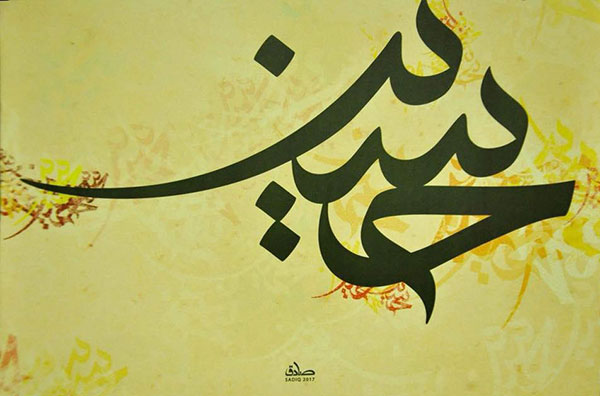 حسین
صادق
SADIQ 2017